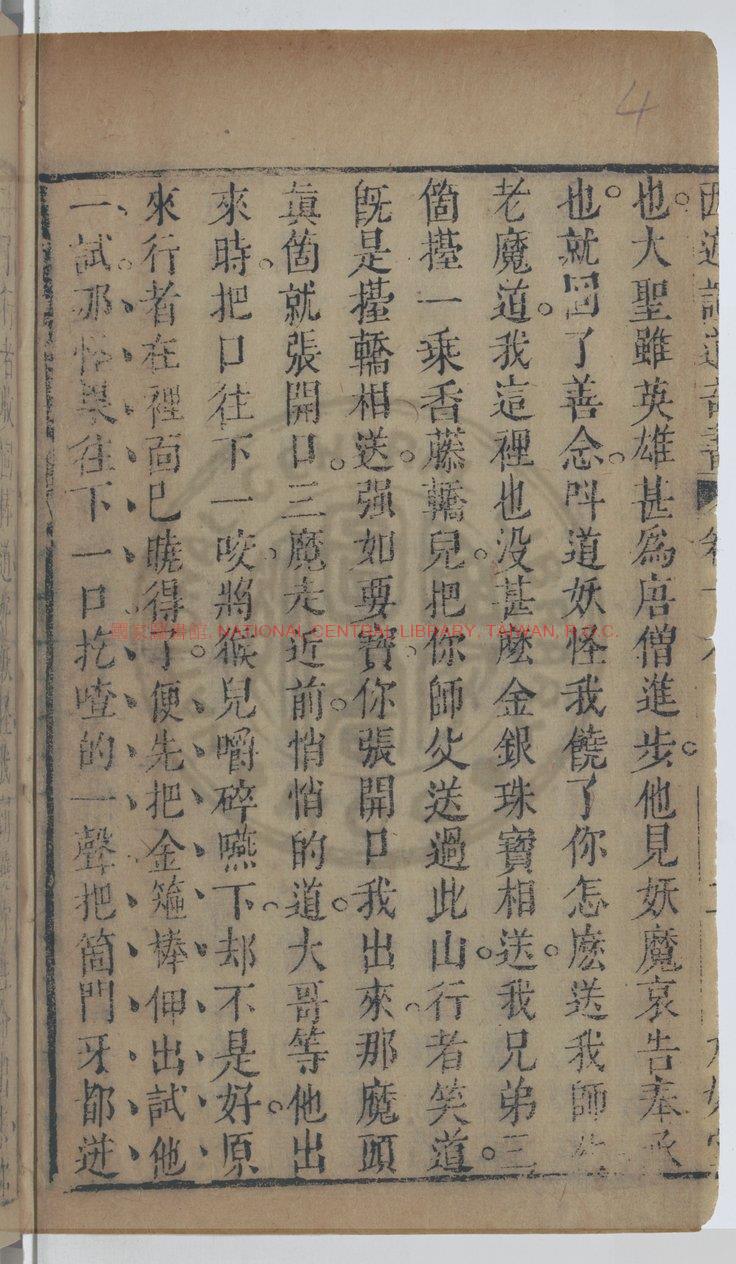 4
也。大聖雖英雄甚爲唐僧進步。他見妖魔哀告奉承
也。就回了善念。呌道妖怪我饒了你怎麽送我師父
老魔道。我這裡也没甚麽金銀珠寶相送。我兄弟三
箇擡一乘香藤轎兒。把你師父送過此山。行者笑道。
既是擡轎相送。强如要寳。你張開口。我出來。那魔頭
眞箇就張開口。三魔走近前。悄悄的道。大哥等他出
來時。把口往下一咬。將猴兒嚼碎嚥下。却不是好。原
來行者在裡面已曉得了。便先把金箍棒伸出試他
一試。那怪果往下一口扢喳的一聲把箇門牙都迸
國家圖書館, NATIONAL CENTRAL LIBRARY, TAIWAN, R.O.C.